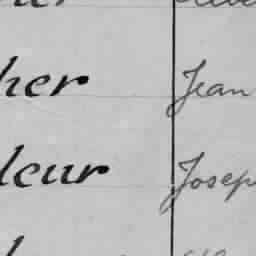 her Jean
leur Joseph